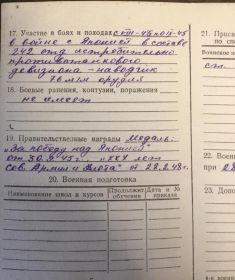 17. Участие в боях и походах с VIII-45 по IX-45
в войне с Японией в составе
242 отд. истребительно
противотанкового
дивизиона - наводчик
орудия
18. Боевые ранения, контузии, поражения
не имеет
19. Правительственные награды Медаль:
„За победу над Японией"
от 30.9.45 г., „XXX лет
Сов. Армии и Флота" от 22.2.48 г.
20. Военная подготовка
Наименование школ и курсов
Продолжит. обучения
Дата и № приказа
21. Прис
Воинское
ст.
22. Воен
при
23. Допо